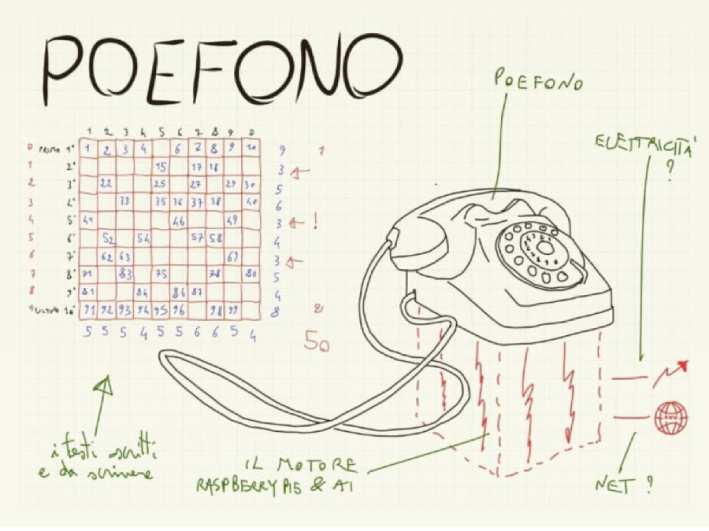 POEFONO
POEFONO
ELETTRICITÀ
?
1 2 3 4 5 6 7 8 9 0
0 PRIMO 1° 1 2 3 4 6 7 8 9 10 9 1
1 2° 15 17 18 3
2 3° 22 25 27 29 30 5
3 4° 33 35 36 37 38 40 6
4 5° 41 46 49 3 !
5 6° 52 54 57 58 4
6 7° 62 63 67 3
7 8° 71 73 75 78 80 5
8 9° 81 84 86 87 4
9 ULTIMO 10° 91 92 93 94 95 96 98 99 8 2
5 5 5 4 5 5 6 6 5 4
50
i testi scritti
e da scrivere
IL MOTORE
RASPBERRY PI5 & AI
NET ?